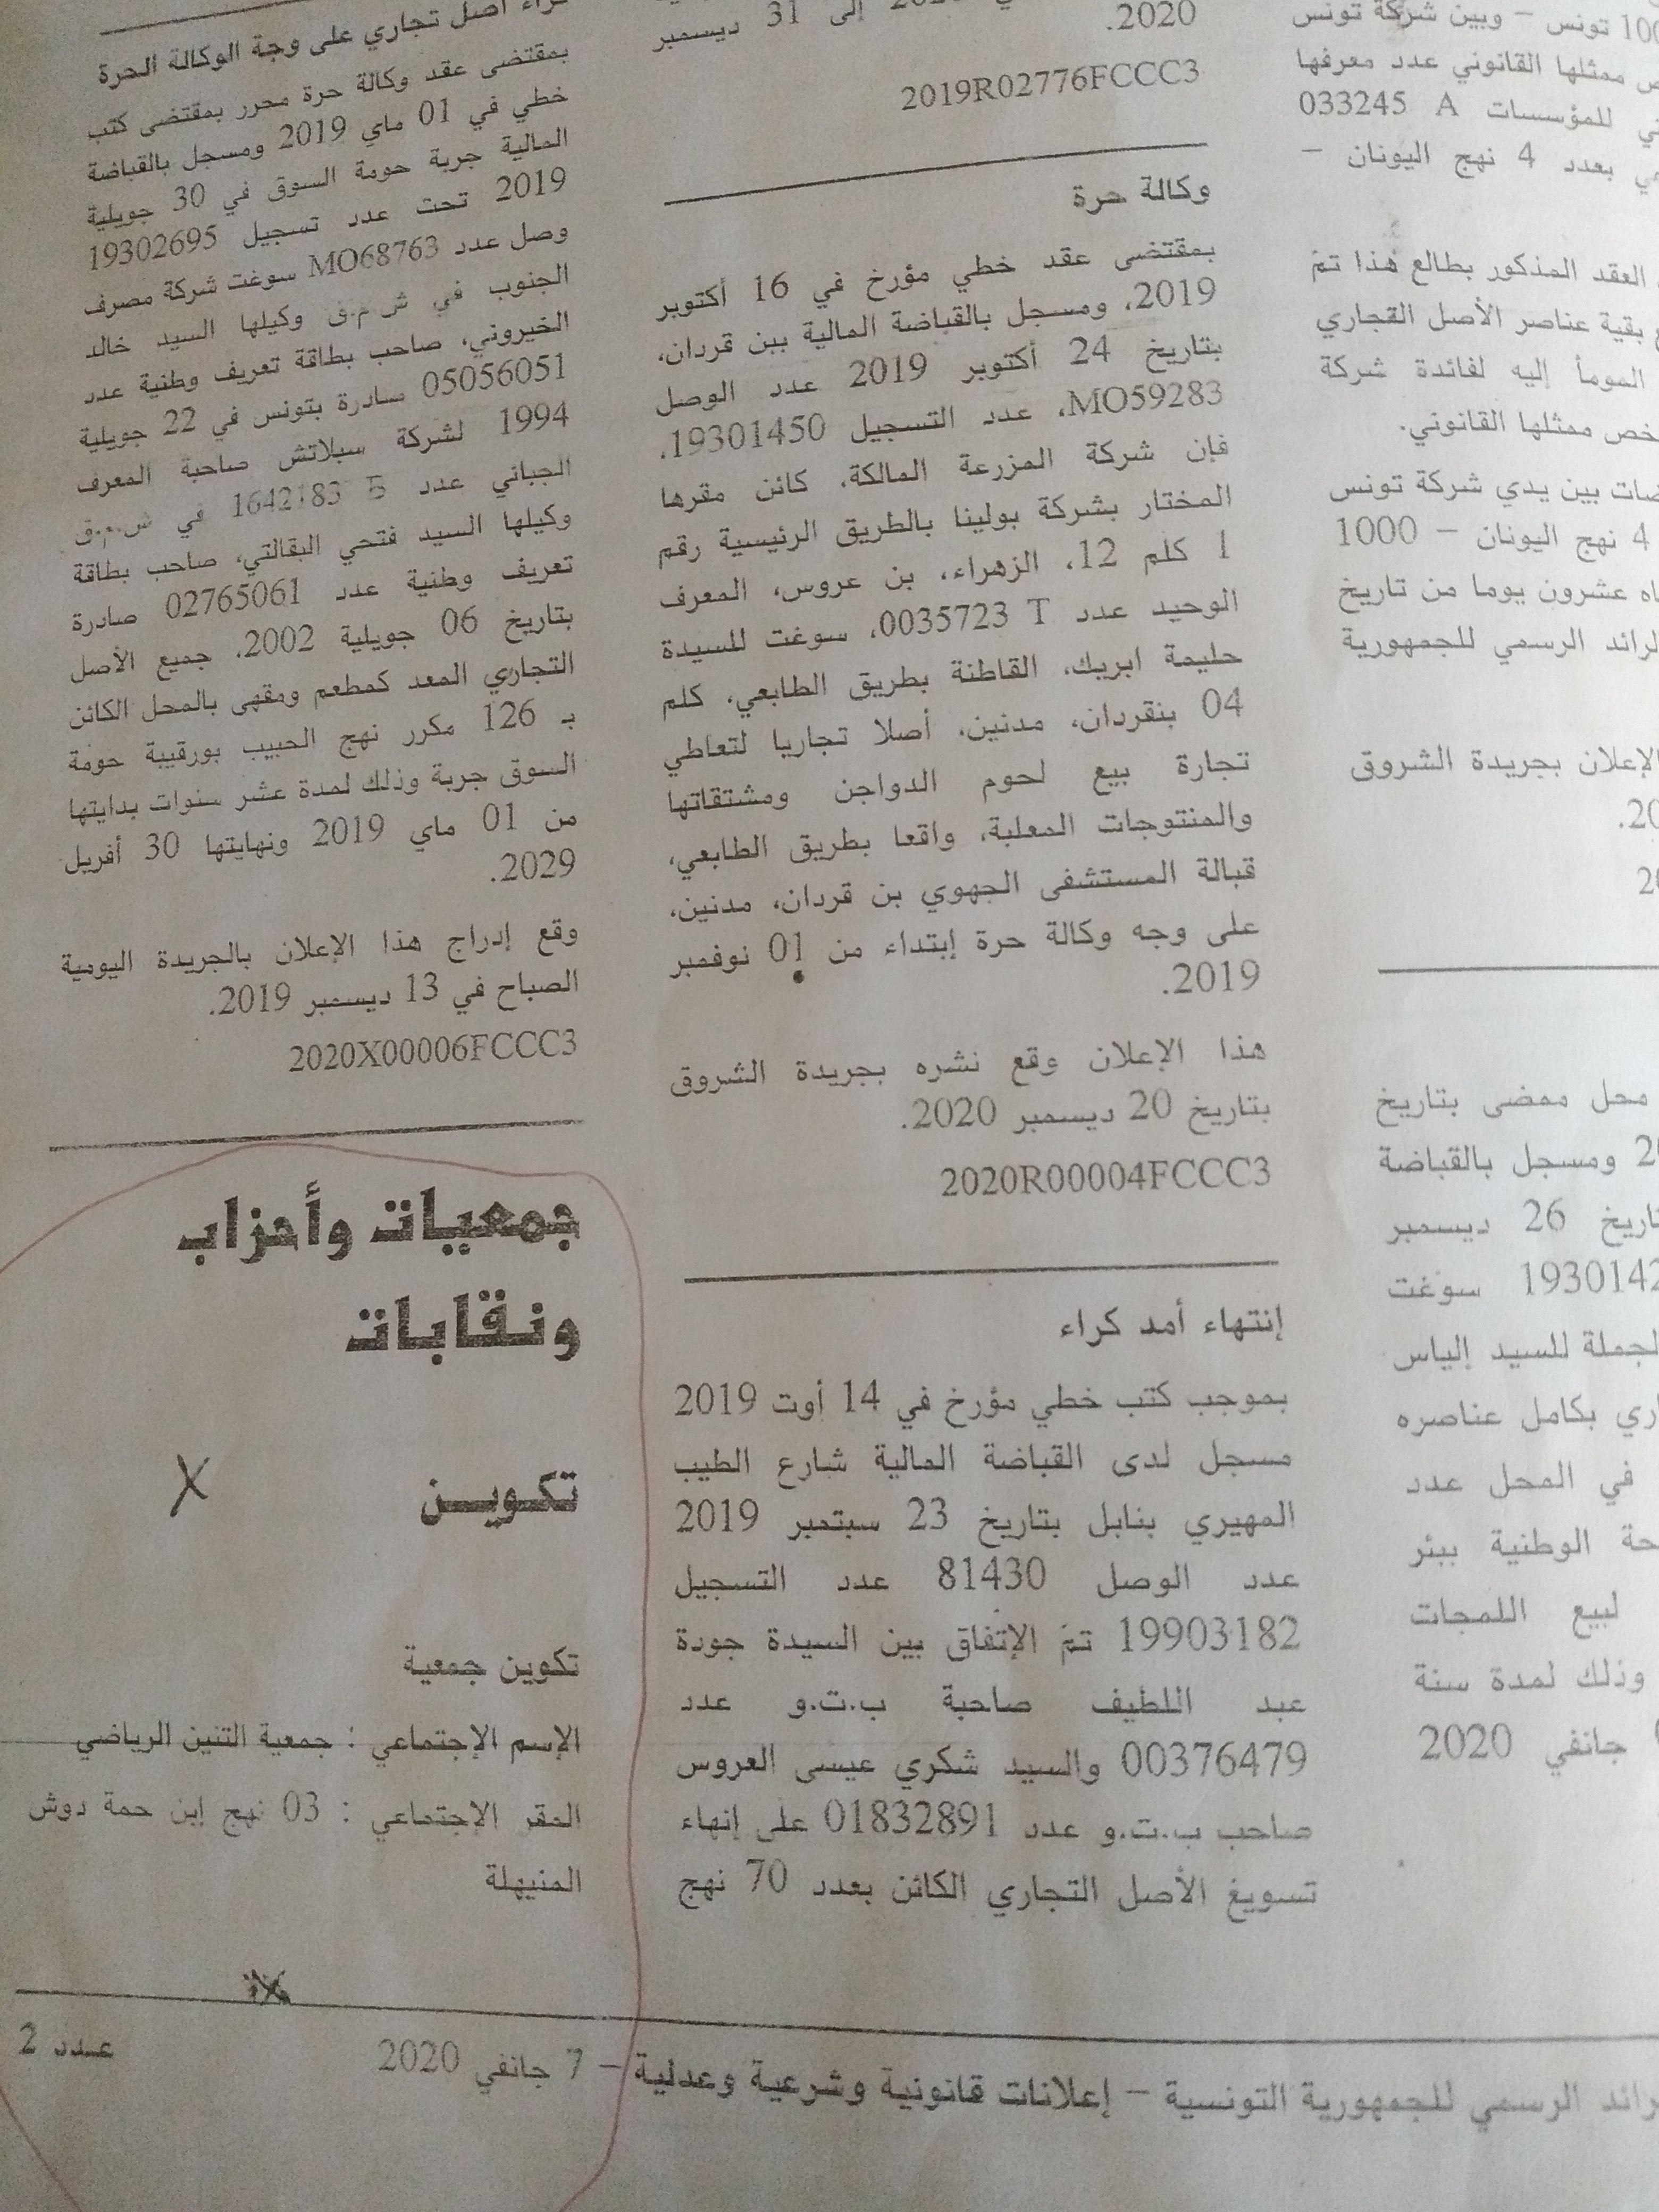 تونس – وبين شركة تونس
ممثلها القانوني عدد معرفها
للمؤسسات 033245 A
بعدد 4 نهج اليونان –
العقد المذكور بطالع هذا تم
بقية عناصر الأصل التجاري
المومأ إليه لفائدة شركة
ممثلها القانوني.
بين يدي شركة تونس
4 نهج اليونان – 1000
عشرون يوما من تاريخ
الرسمي للجمهورية
الإعلان بجريدة الشروق
محل ممضى بتاريخ
ومسجل بالقباضة
26 ديسمبر
سوغت
للسيد إلياس
بكامل عناصره
في المحل عدد
الوطنية ببئر
لبيع اللمجات
وذلك لمدة سنة
جانفي 2020
إلى 31 ديسمبر
2020.
2019R02776FCCC3
وكالة حرة
بمقتضى عقد خطي مؤرخ في 16 أكتوبر
2019، ومسجل بالقباضة المالية ببن قردان،
بتاريخ 24 أكتوبر 2019 عدد الوصل
MO59283، عدد التسجيل 19301450،
فإن شركة المزرعة المالكة، كائن مقرها
المختار بشركة بولينا بالطريق الرئيسية رقم
1 كلم 12، الزهراء، بن عروس، المعرف
الوحيد عدد 0035723 T، سوغت للسيدة
حليمة ابريك، القاطنة بطريق الطابعي، كلم
04 بنقردان، مدنين، أصلا تجاريا لتعاطي
تجارة بيع لحوم الدواجن ومشتقاتها
والمنتوجات المعلبة، واقعا بطريق الطابعي،
قبالة المستشفى الجهوي بن قردان، مدنين،
على وجه وكالة حرة إبتداء من 01 نوفمبر
2019.
هذا الإعلان وقع نشره بجريدة الشروق
بتاريخ 20 ديسمبر 2020.
2020R00004FCCC3
إنتهاء أمد كراء
بموجب كتب خطي مؤرخ في 14 أوت 2019
مسجل لدى القباضة المالية شارع الطيب
المهيري بنابل بتاريخ 23 سبتمبر 2019
عدد الوصل 81430 عدد التسجيل
19903182 تم الإتفاق بين السيدة جودة
عبد اللطيف صاحبة ب.ت.و عدد
00376479 والسيد شكري عيسى العروس
صاحب ب.ت.و عدد 01832891 على إنهاء
تسويغ الأصل التجاري الكائن بعدد 70 نهج
كراء أصل تجاري على وجة الوكالة الحرة
بمقتضى عقد وكالة حرة محرر بمقتضى كتب
خطي في 01 ماي 2019 ومسجل بالقباضة
المالية جربة حومة السوق في 30 جويلية
2019 تحت عدد تسجيل 19302695
وصل عدد MO68763 سوغت شركة مصرف
الجنوب في ش.م.ق وكيلها السيد خالد
الخيروني، صاحب بطاقة تعريف وطنية عدد
05056051 صادرة بتونس في 22 جويلية
1994 لشركة سبلاتش صاحبة المعرف
الجبائي عدد 1642183 B في ش.م.ق
وكيلها السيد فتحي البقالتي، صاحب بطاقة
تعريف وطنية عدد 02765061 صادرة
بتاريخ 06 جويلية 2002، جميع الأصل
التجاري المعد كمطعم ومقهى بالمحل الكائن
بـ 126 مكرر نهج الحبيب بورقيبة حومة
السوق جربة وذلك لمدة عشر سنوات بدايتها
من 01 ماي 2019 ونهايتها 30 أفريل
2029.
وقع إدراج هذا الإعلان بالجريدة اليومية
الصباح في 13 ديسمبر 2019.
2020X00006FCCC3
جمعيات وأحزاب
ونقابات
تكويـن X
تكوين جمعية
الإسم الإجتماعي : جمعية التنين الرياضي
المقر الإجتماعي : 03 نهج إبن حمة دوش
المنيهلة
الرائد الرسمي للجمهورية التونسية – إعلانات قانونية وشرعية وعدلية – 7 جانفي 2020
عـدد 2